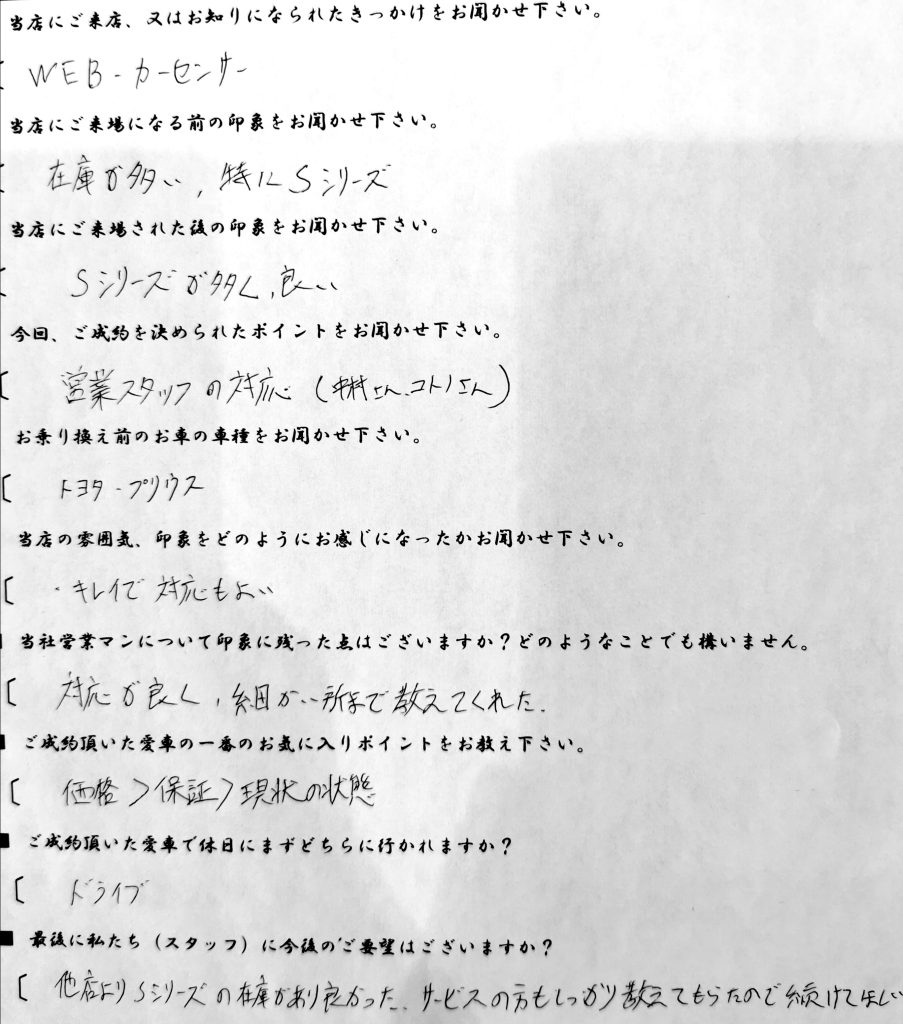 当店にご来店、又はお知りになられたきっかけをお聞かせ下さい。
WEB - カーセンサー
当店にご来場になる前の印象をお聞かせ下さい。
在庫が多い, 特にSシリーズ
当店にご来場された後の印象をお聞かせ下さい。
Sシリーズが多く, 良い
今回、ご成約を決められたポイントをお聞かせ下さい。
営業スタッフの対応 (中村さん、コトノさん)
お乗り換え前のお車の車種をお聞かせ下さい。
トヨタ・プリウス
当店の雰囲気、印象をどのようにお感じになったかお聞かせ下さい。
・キレイで対応もよい
当社営業マンについて印象に残った点はございますか?どのようなことでも構いません。
対応が良く, 細かい所まで教えてくれた.
■ ご成約頂いた愛車の一番のお気に入りポイントをお教え下さい。
価格 > 保証 > 現状の状態
■ ご成約頂いた愛車で休日にまずどちらに行かれますか?
ドライブ
■ 最後に私たち(スタッフ)に今後のご要望はございますか?
他店よりSシリーズの在庫があり良かった、サービスの方もしっかり教えてもらたので続けてほしい